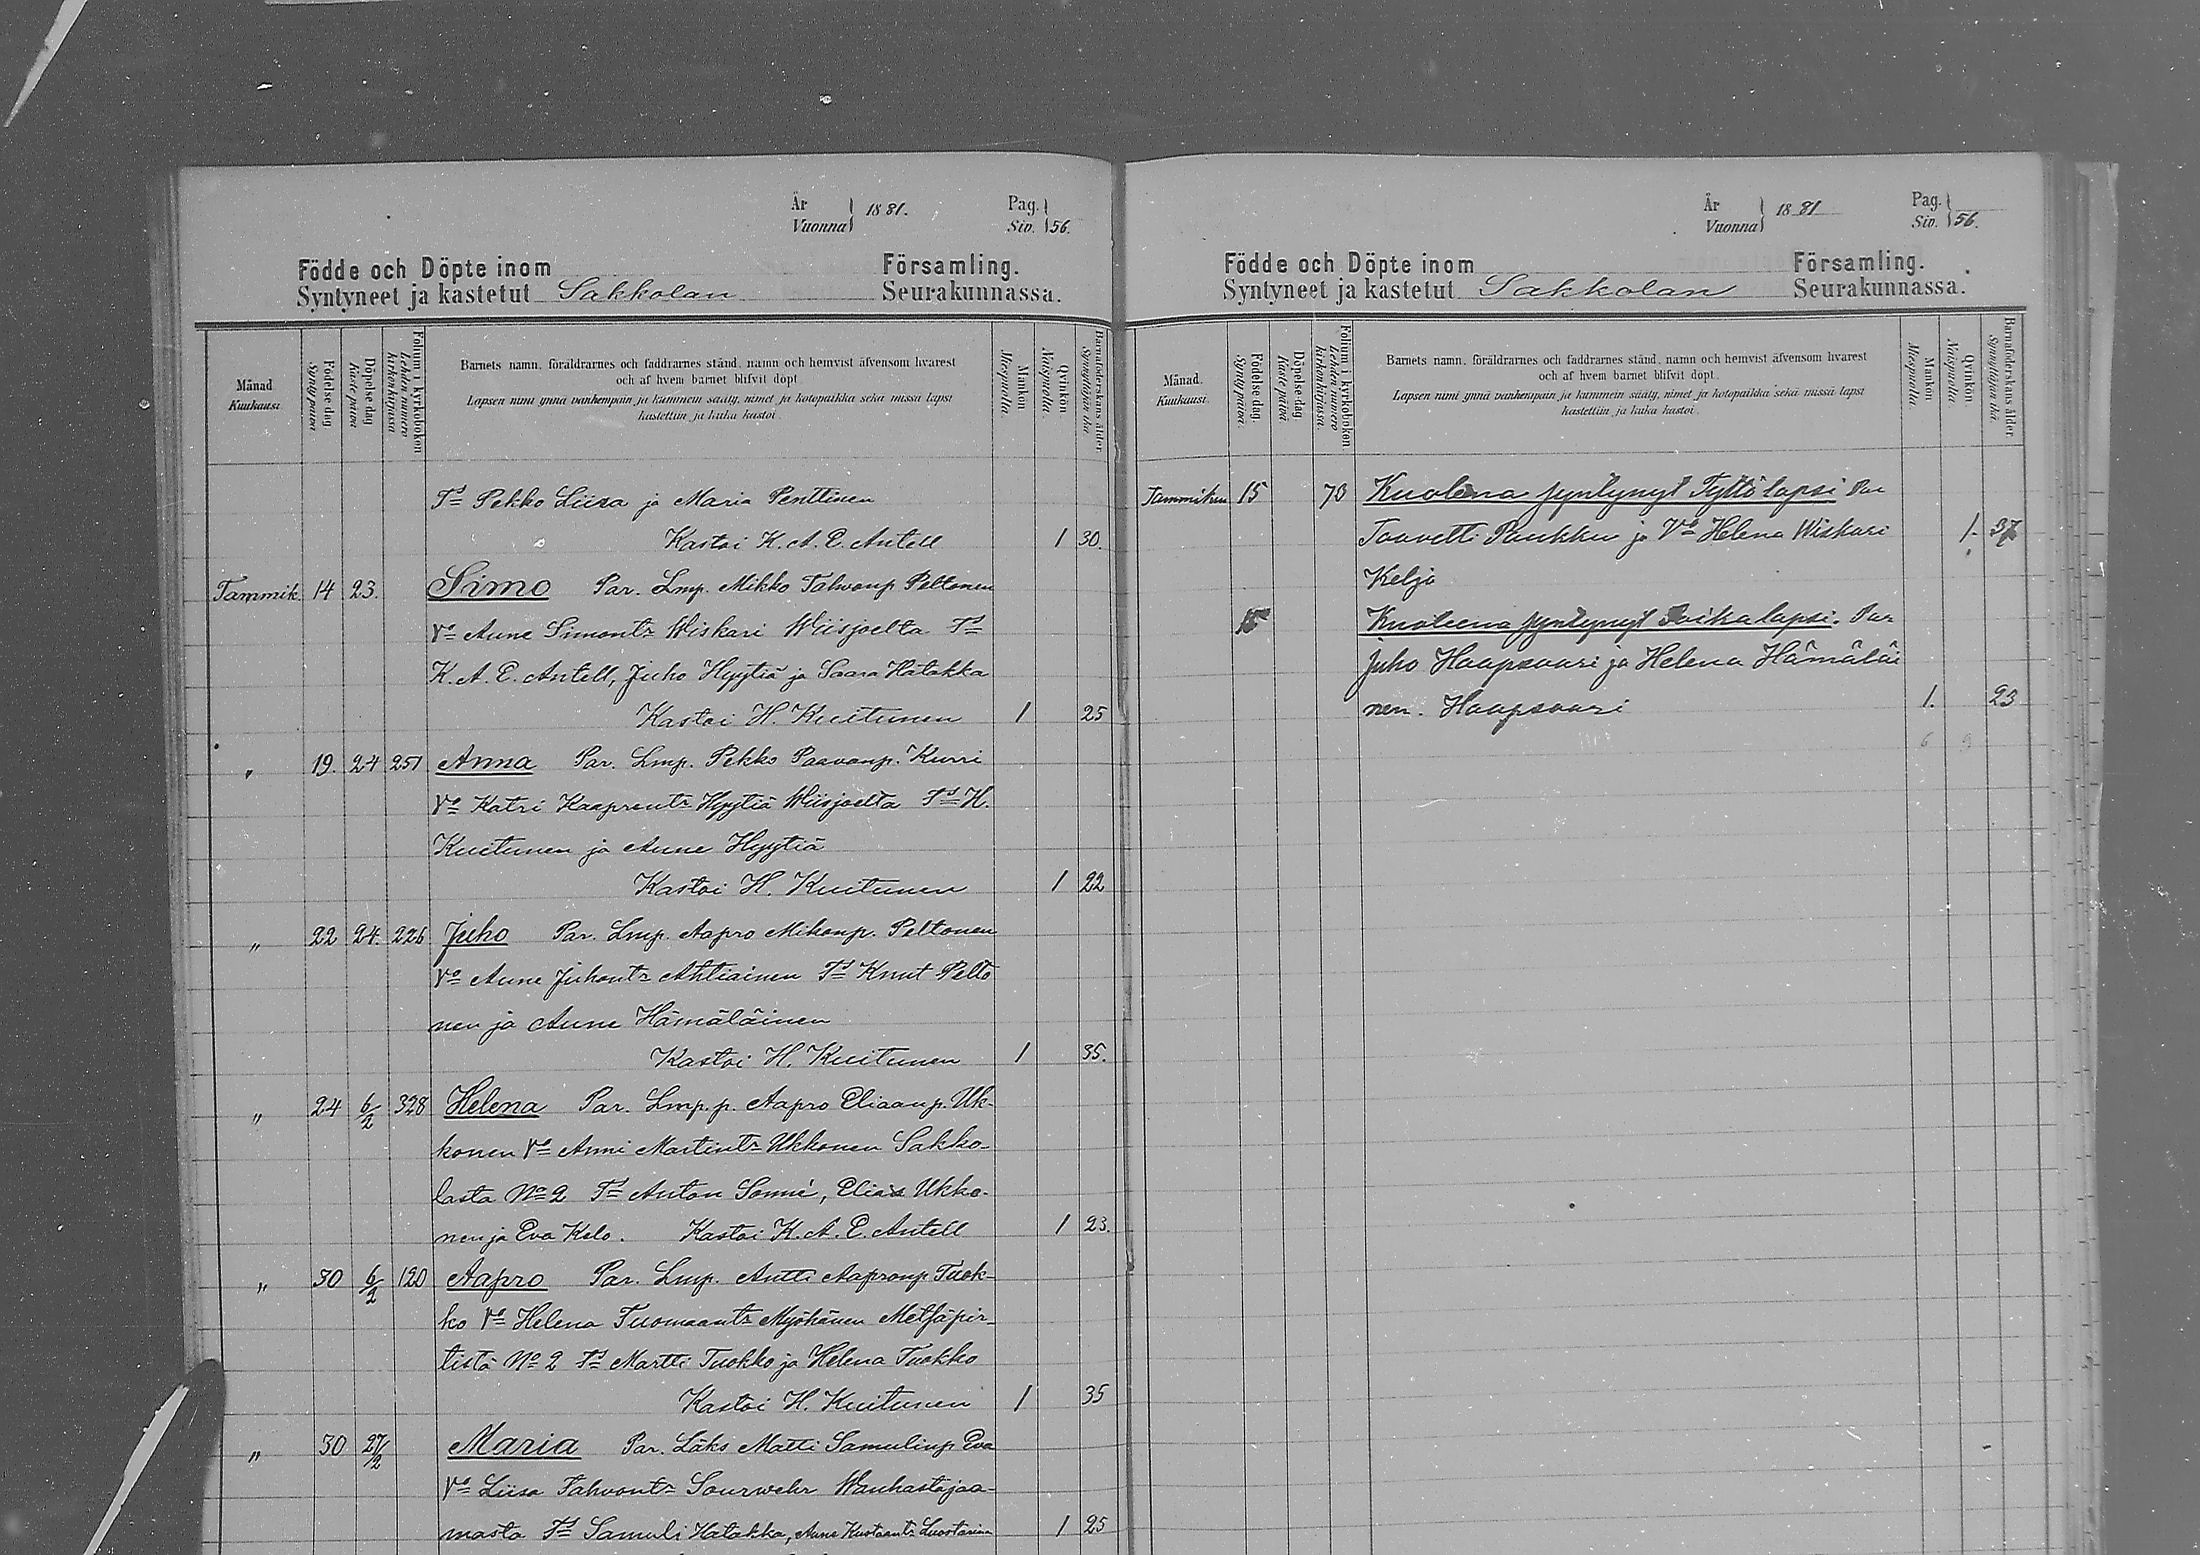 År
Vuonna 1881.
Pag.
Siv. 56.
Födde och Döpte inom Församling.
Syntyneet ja kastetut Sakkolan Seurakunnassa.
Månad.
Kuukausi.
Födelse dag
Synty päivä
Döpelse dag
Kaste päivä
Folium i kyrkoboken
Lehden numero kirkonkirjassa
Barnets namn, föräldrarnes och faddrarnes stånd, namn och hemvist äfvensom hvarest
och af hvem barnet blifvit döpt.
Lapsen nimi ynnä vanhempain ja kummein sääty, nimet ja kotopaikka sekä missä lapsi
kastettiin ja kuka kastoi.
Mankön
Miespuolia.
Qvinkön
Naispuolia.
Barnaföderskans ålder.
Synnyttäjän ikä
Td Pekko Liisa ja Maria Penttinen
Kastoi K. A. E. Antell 1 30.
Tammik. 14 23. Simo Par. Lmp. Mikko Tahvonp. Peltonen
Vo Aune Simontr Wiskari Wiisjoelta Td
K. A. E. Antell, Juho Hyytiä ja Saara Hatakka
Kastoi H. Kuitunen 1 25
" 19. 24 251 Anna Par. Lmp. Pekko Paavonp. Kurri
Vo Katri Kaaprentr Hyytiä Wiisjoelta Td H.
Kuitunen ja Aune Hyytiä
Kastoi H. Kuitunen 1 22
" 22 24. 226 Juho Par. Lmp. Aapro Mikonp. Peltonen
Vo Aune Juhontr Ahtiainen Td Knut Pelto
nen ja Aune Hämäläinen
Kastoi H. Kuitunen 1 35.
" 24 6/2 328 Helena Par. Lmp.p. Aapro Eliaanp. Uk-
konen Vo Anni Martintr Ukkonen Sakko-
lasta No 2 Td Anton Sonné, Elias Ukko-
nen ja Eva Kelo. Kastoi K. A. E. Antell 1 23.
" 30 6/2 120 Aapro Par. Lmp. Antti Aapronp Tuok-
ko Vo Helena Tuomaantr Myöhänen Metsäpir-
tistä No 2 Td Martti Tuokko ja Helena Tuokko
Kastoi H. Kuitunen 1 35
" 30 27/2 Maria Par. Läks Matti Samulinp Eva
Vo Liisa Tahvontr Saurwehr Wanhastajaa-
masta Td Samuli Hatakka, Aune Kustaantr Luostarinen 1 25
År
Vuonna 1881
Pag.
Siv. 56.
Födde och Döpte inom Församling.
Syntyneet ja kastetut Sakkolan Seurakunnassa.
Månad.
Kuukausi.
Födelse dag.
Synty päivä.
Döpelse dag.
Kaste päivä
Folium i kyrkoboken.
Lehden numero kirkonkirjassa.
Barnets namn, föräldrarnes och faddrarnes stånd, namn och hemvist äfvensom hvarest
och af hvem barnet blifvit döpt.
Lapsen nimi ynnä vanhempain ja kummein sääty, nimet ja kotopaikka sekä missä lapsi
kastettiin ja kuka kastoi.
Mankön
Miespuolia.
Qvinkön
Naispuolia.
Barnaföderskans ålder.
Synnyttäjän ikä.
Tammikuu 15 70 Kuolena syntynyt Tyttölapsi Par
Taavetti Paukku ja Vo Helena Wiskari 1. 37
Kelja
15 Kuoleena syntynyt Poikalapsi. Par
Juho Haapsaari ja Helena Hämäläi
nen. Haapsaari 1. 23
6 9